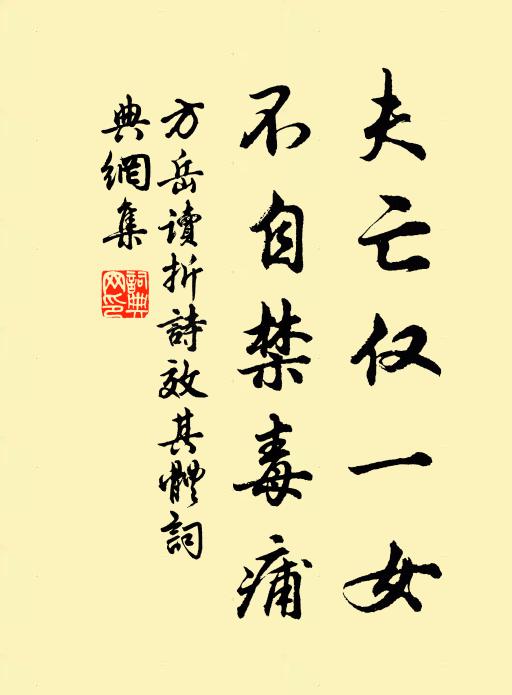 夫亡仅一女
不自禁毒痡
方岳讀折詩效其體詞
典網集
詞典
网印